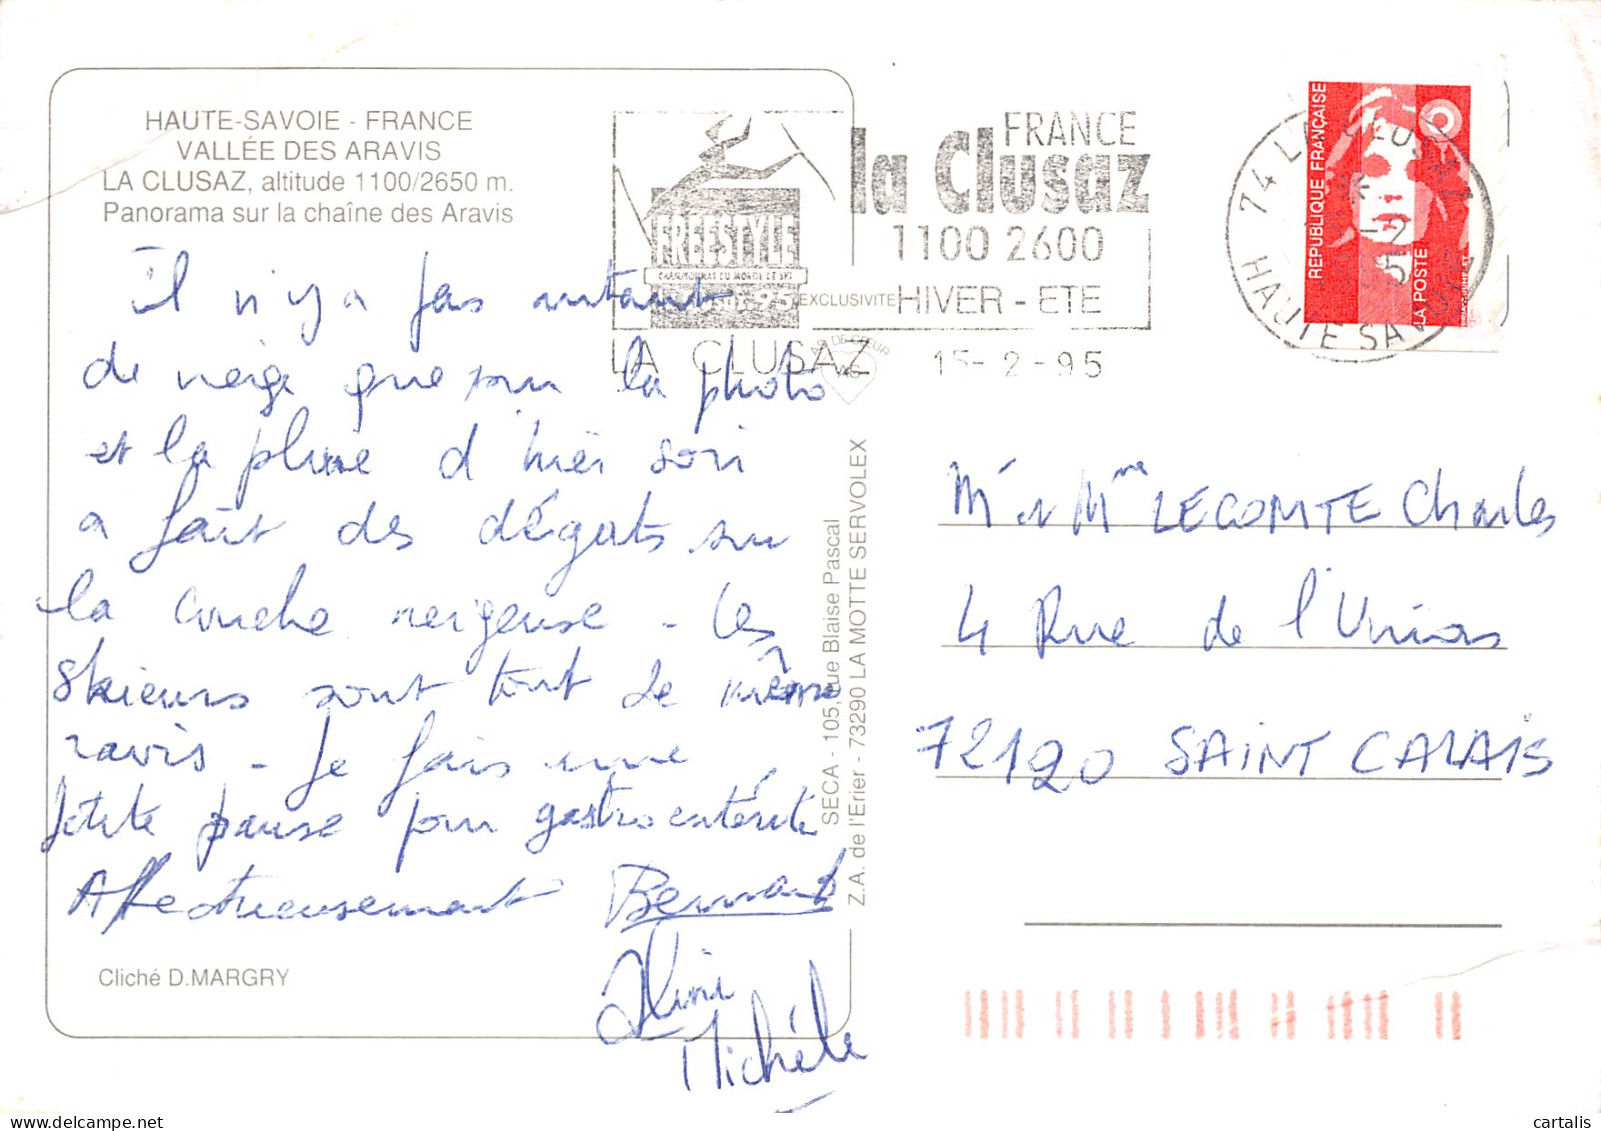 HAUTE-SAVOIE - FRANCE
VALLÉE DES ARAVIS
LA CLUSAZ, altitude 1100/2650 m.
Panorama sur la chaîne des Aravis
Il n'y a pas autant
de neige que sur la photo
et la pluie d'hier soir
a fait des dégats sur
la couche neigeuse - Les
skieurs sont tout de même
ravis - Je fais une
petite pause pour gastroentérite
Affectueusement Bernard
Aline
Michèle
Cliché D.MARGRY
FREESTYLE
CHAMPIONNAT DU MONDE DE SKI
LA CLUSAZ
FRANCE
la Clusaz
1100 2600
HIVER - ETE
15-2-95
EXCLUSIVITE
SECA - 105, rue Blaise Pascal
Z.A. de l'Erier - 73290 LA MOTTE SERVOLEX
74 LA CLUSAZ
HAUTE SAVOIE
REPUBLIQUE FRANÇAISE
LA POSTE
Mr et Mme LECOMTE Charles
4 Rue de l'Union
72120 SAINT CALAIS
cartalis